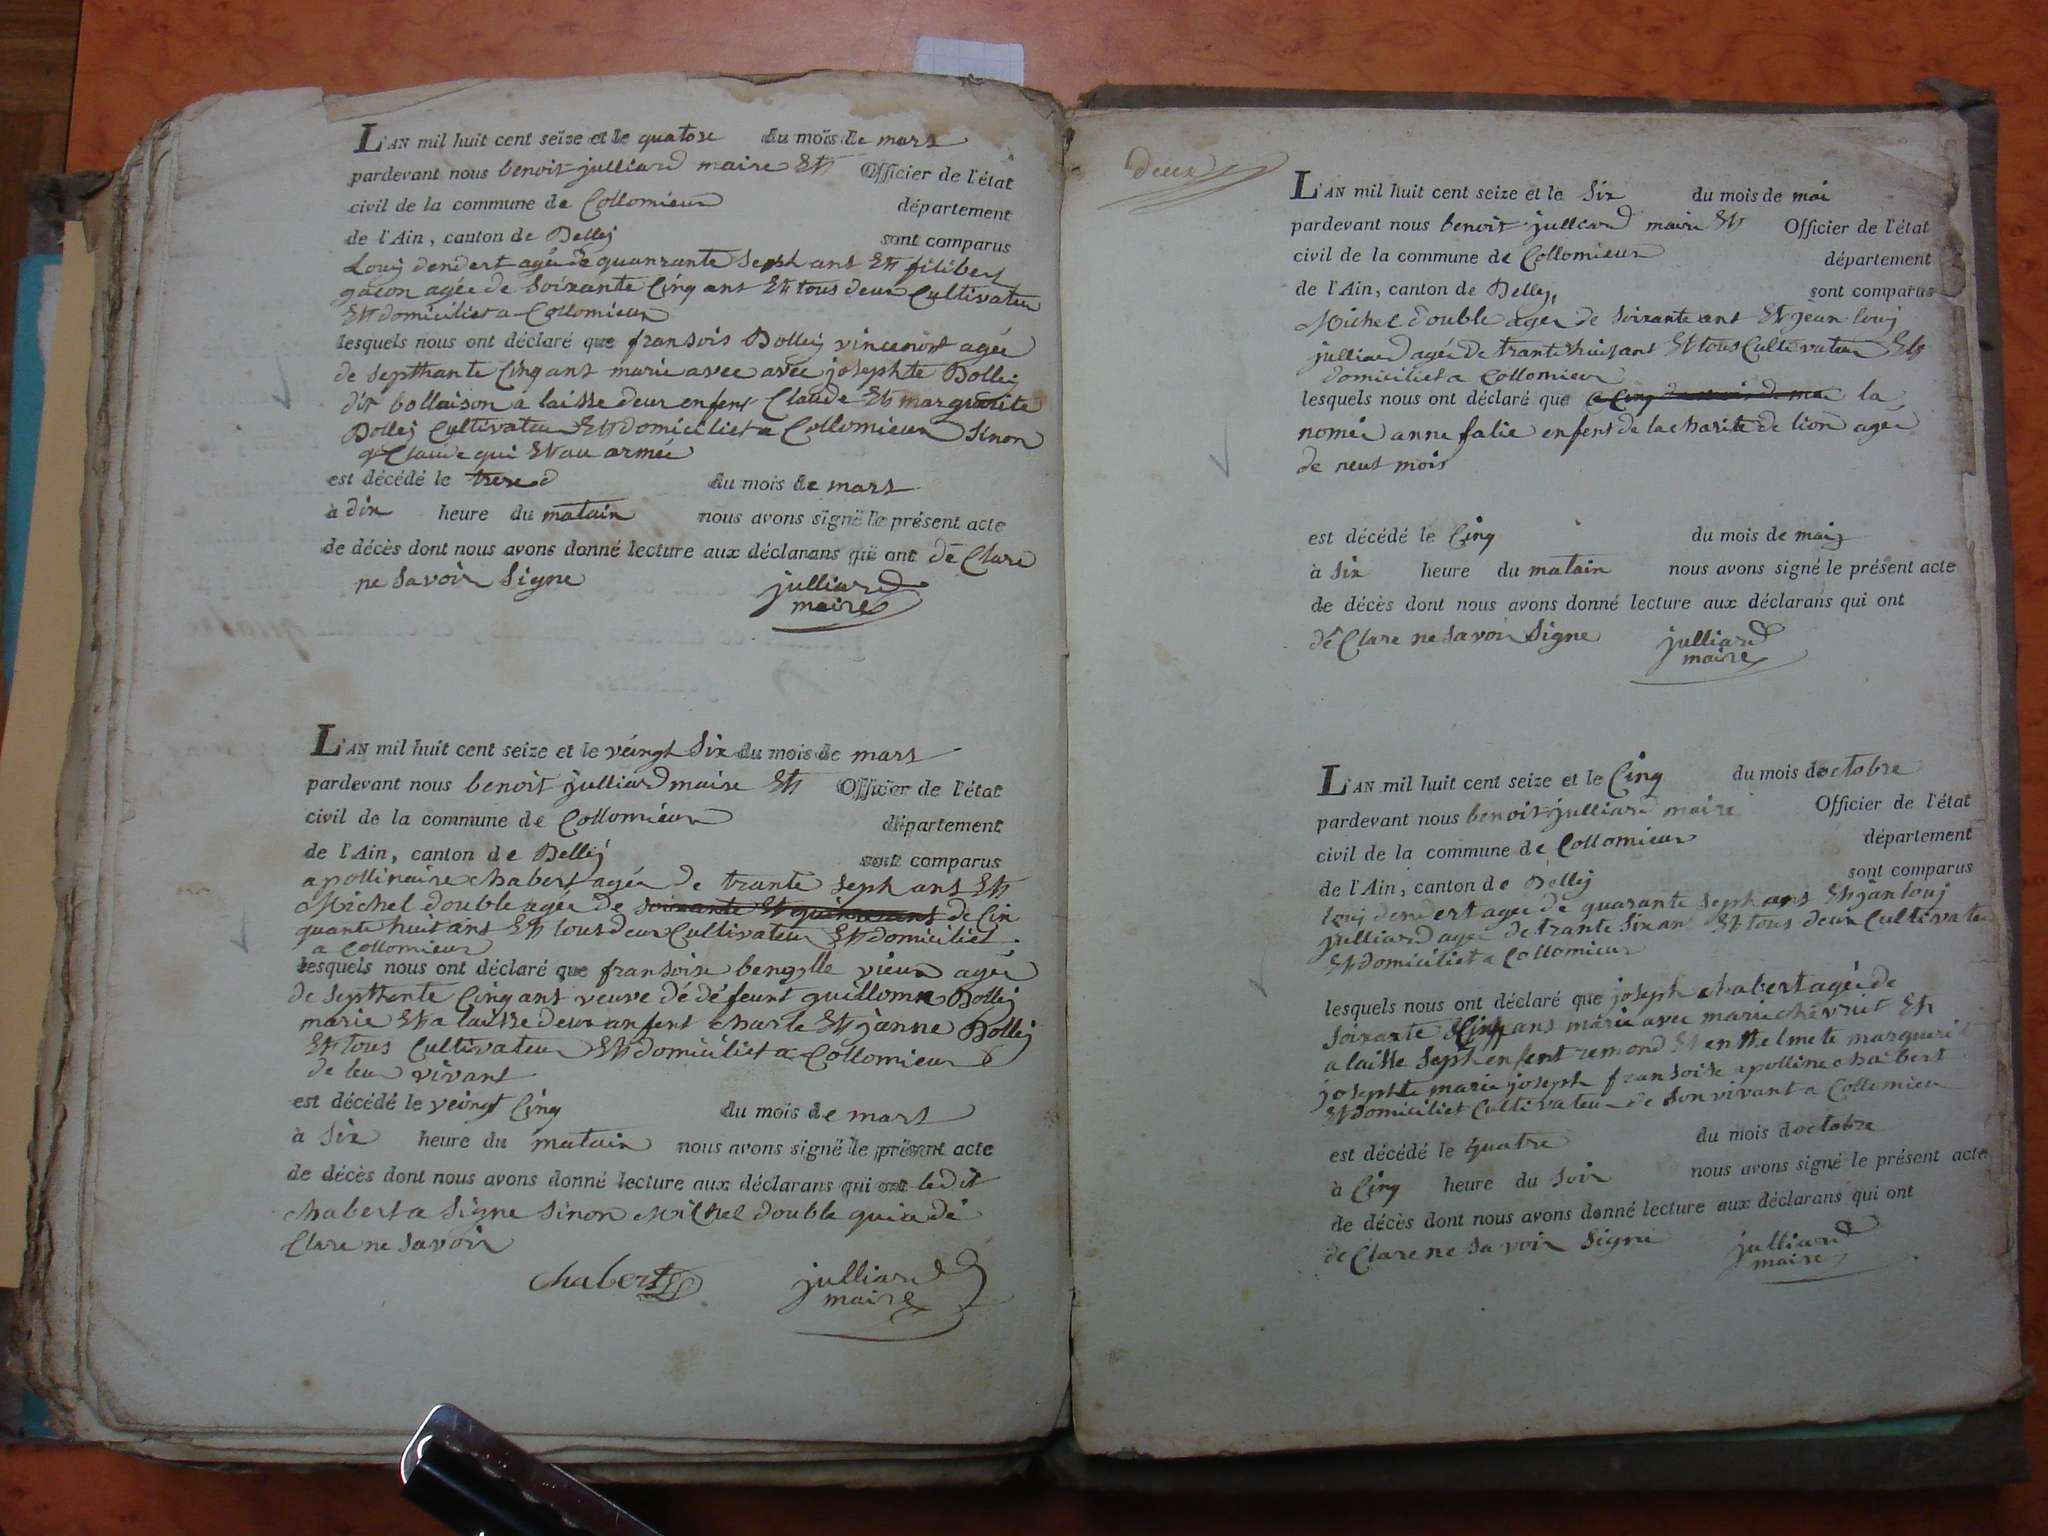 L'AN mil huit cent seize et le quatose du mois de mars
pardevant nous benoit julliard maire Et Officier de l'état
civil de la commune de Collomieux département
de l'Ain, canton de Belley sont comparus
Louij dendert agée de quanrante Seph ans Et filibert
gacon agée de Soixante Cinq ans Et tous deux Cultivateu
Et domiciliet a Collomieux
lesquels nous ont déclaré que fransois Bolley vincenot agée
de Septhante Cinq ans marie avec avec josephte Bolley
dit bollaison a laisse deux enfens Claude Et marguerite
Bolley Cultivateu Et domiciliet a Collomieux Sinon
Claude qui Et au armée
est décédé le treze du mois de mars
à dix heure du matain nous avons signé le présent acte
de décès dont nous avons donné lecture aux déclarans qui ont dé Clare
ne Savoir Signe julliard
maire
L'AN mil huit cent seize et le véingt Six du mois de mars
pardevant nous benoit julliard maire Et Officier de l'état
civil de la commune de Collomieux département
de l'Ain, canton de Belley sont comparus
apollinaire chabert agée de trante Seph ans Et
Michel double agée de soixante Et quinze ans de Cin
quante huit ans Et tous deux Cultivateu Et domiciliet
a Collomieux
lesquels nous ont déclaré que fransoise vieux agée
de Septhante Cinq ans veuve dé défeunt guillome Bolley
marie Et a laisse deux anfent charle Et janne Bolley
Et tous Cultivateu Et domiciliet a Collomieux
de leu vivant
est décédé le veingt Cinq du mois de mars
à Six heure du matain nous avons signé le présent acte
de décès dont nous avons donné lecture aux déclarans qui ont ledit
chabert a Signe Sinon Michel double qui a dé
Clare ne Savoir
chabert julliard
maire
deux
L'AN mil huit cent seize et le Six du mois de mai
pardevant nous benoit julliard maire Et Officier de l'état
civil de la commune de Collomieux département
de l'Ain, canton de Belley sont comparus
Michel double agée de Soixante ans Et jean louij
julliard agée de trante huit ans Et tous Cultivateu Et
domiciliet a Collomieux
lesquels nous ont déclaré que la
nomée anne falie enfent de la charite de lion agée
de neuf mois
est décédé le Cinq du mois de mai
à Six heure du matain nous avons signé le présent acte
de décès dont nous avons donné lecture aux déclarans qui ont
dé Clare ne Savoir Signe julliard
maire
L'AN mil huit cent seize et le Cinq du mois doctobre
pardevant nous benoit julliard maire Officier de l'état
civil de la commune de Collomieux département
de l'Ain, canton de Belley sont comparus
louij dendert agée de quarante Seph ans Et jan louij
julliard agée de trante Six an Et tous deux Cultivateu
Et domiciliet a Collomieux
lesquels nous ont déclaré que joseph chabert agée de
Soixante Cinq ans marie avec marie chevriet Et
a laisse Seph enfent remond Et enthelmete margueri
josephte marie joseph fransoise apolline chabert
Et domiciliet Cultivateu de Son vivant a Collomieu
est décédé le quatre du mois doctobre
à Cinq heure du Soir nous avons signé le présent acte
de décès dont nous avons donné lecture aux déclarans qui ont
de Clare ne Savoir Signe julliard
maire